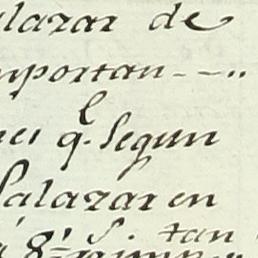 alazar de
mportan - - ..
nes q.e segun
Salazar en
tan